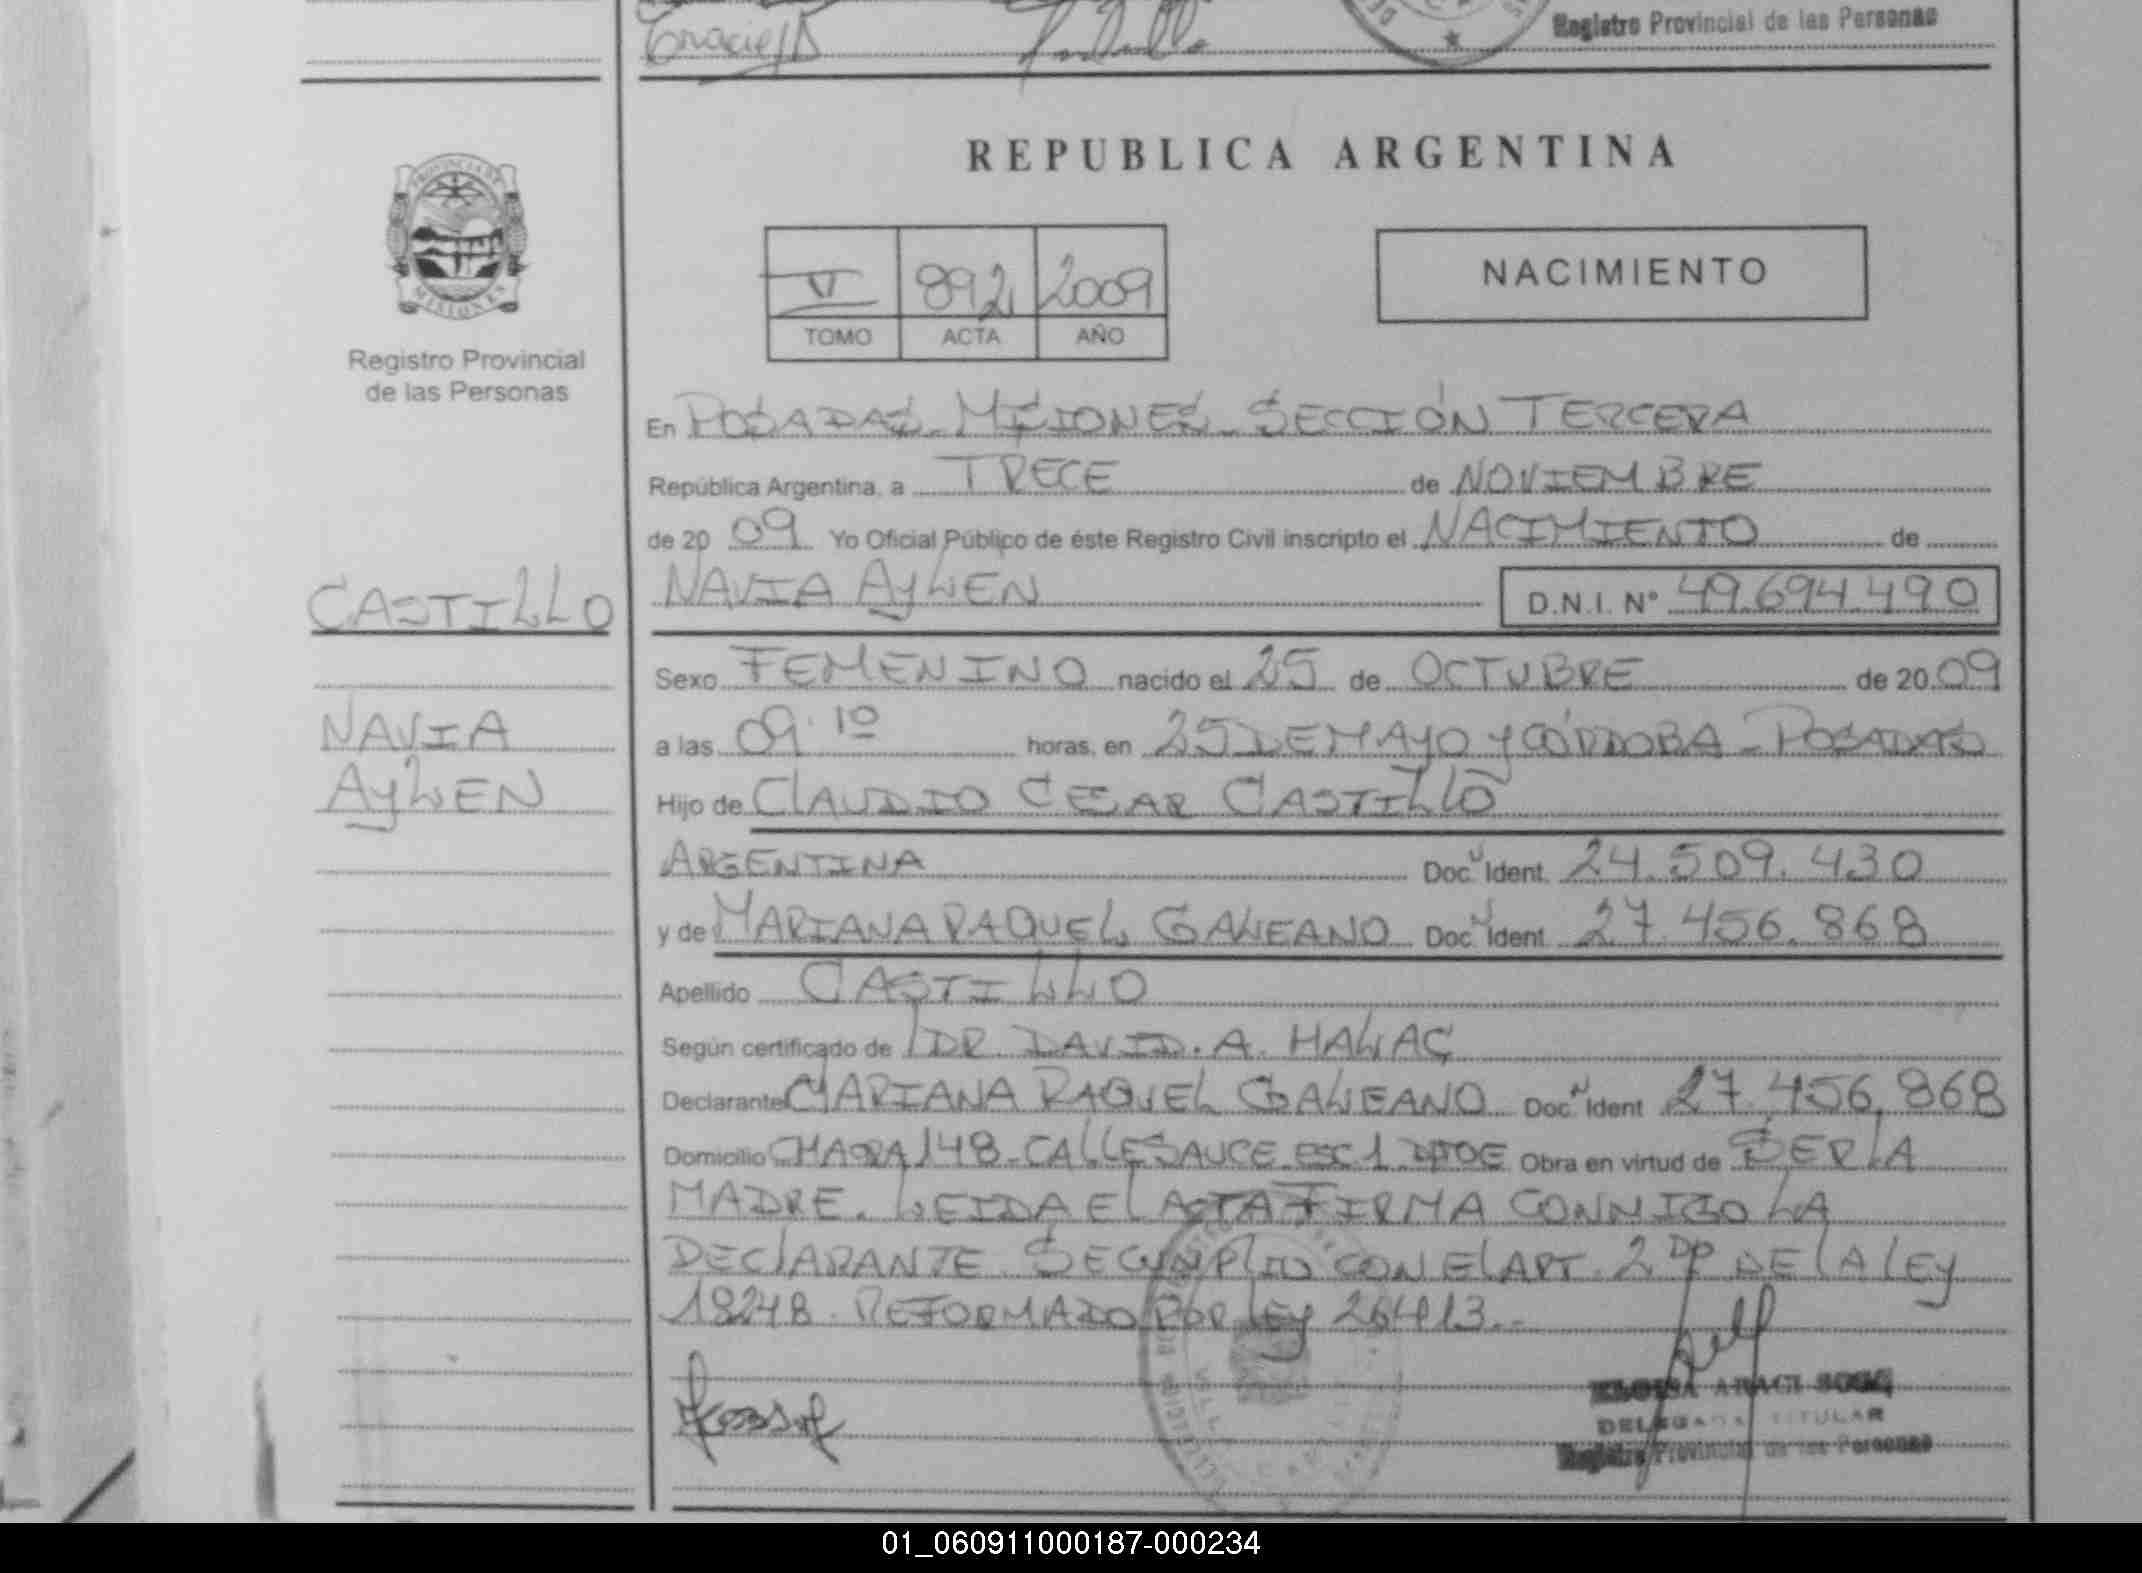 Registro Provincial de las Personas
PROVINCIA DE
MISIONES
Registro Provincial
de las Personas
CASTILLO
NAVIA
AYLEN
REPUBLICA ARGENTINA
VI 892 2009
TOMO ACTA AÑO
NACIMIENTO
En POSADAS - MISIONES - SECCIÓN TERCERA
República Argentina, a TRECE de NOVIEMBRE
de 20 09 Yo Oficial Público de éste Registro Civil inscripto el NACIMIENTO de
NAVIA AYLEN D.N.I. Nº 49.694.490
Sexo FEMENINO nacido el 25 de OCTUBRE de 20 09
a las 09:10 horas, en 25 DE MAYO Y CÓRDOBA - POSADAS
Hijo de CLAUDIO CESAR CASTILLO
ARGENTINA Doc. N Ident. 24.509.430
y de MARIANA RAQUEL GALEANO Doc. N Ident. 27.456.868
Apellido CASTILLO
Según certificado de DR DAVID. A. HALAC
Declarante MARIANA RAQUEL GALEANO Doc. N Ident 27.456.868
Domicilio CHACRA 148 - CALLE SAUCE ESC 1 DPTO E Obra en virtud de SER LA
MADRE. LEIDA EL ACTA FIRMA CONMIGO LA
DECLARANTE. SE CUMPLIO CON EL ART. 2 DP DE LA LEY
18248. REFORMADO POR LEY 26413.-
DELEGADA TITULAR
Registro Provincial de las Personas
01_060911000187-000234